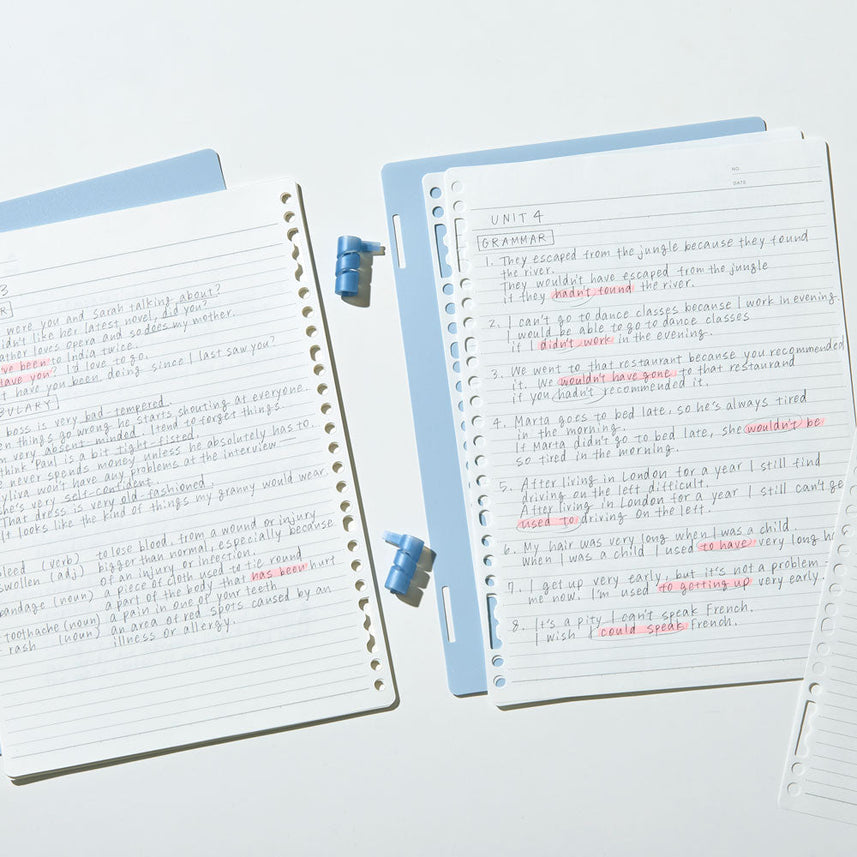 3
R
were you and Sarah talking about?
idn't like her latest novel, did you?
ather loves opera and so does my mother.
ve been to India twice.
Have you? I'd love to go.
t have you been doing since I last saw you?
BULARY
boss is very bad-tempered.
en things go wrong he starts shouting at everyone.
m very absent-minded. I tend to forget things.
think Paul is a bit tight-fisted.
e never spends money unless he absolutely has to.
ylvia won't have any problems at the interview
he's very self-confident.
That dress is very old-fashioned.
It looks like the kind of things my granny would wear.
bleed (verb) to lose blood, from a wound or injury
swollen (adj) bigger than normal, especially because
of an injury or infection.
bandage (noun) a piece of cloth used to tie round
a part of the body that has been hurt
toothache (noun) a pain in one of your teeth
rash (noun) an area of red spots caused by an
illness or allergy.
NO.
DATE
UNIT 4
GRAMMAR
1. They escaped from the jungle because they found
the river.
They wouldn't have escaped from the jungle
if they hadn't found the river.
2. I can't go to dance classes because I work in evening.
I would be able to go to dance classes
if I didn't work in the evening.
3. We went to that restaurant because you recommended
it. We wouldn't have gone to that restaurand
if you hadn't recommended it.
4. Marta goes to bed late, so he's always tired
in the morning.
If Marta didn't go to bed late, she wouldn't be
so tired in the morning.
5. After living in London for a year I still find
driving on the left difficult.
After living in London for a year I still can't ge
used to driving on the left.
6. My hair was very long when I was a child
when I was a child I used to have very long h
7. I get up very early, but it's not a problem
me now. I'm used to getting up very early.
8. It's a pity I can't speak French.
I wish I could speak French.